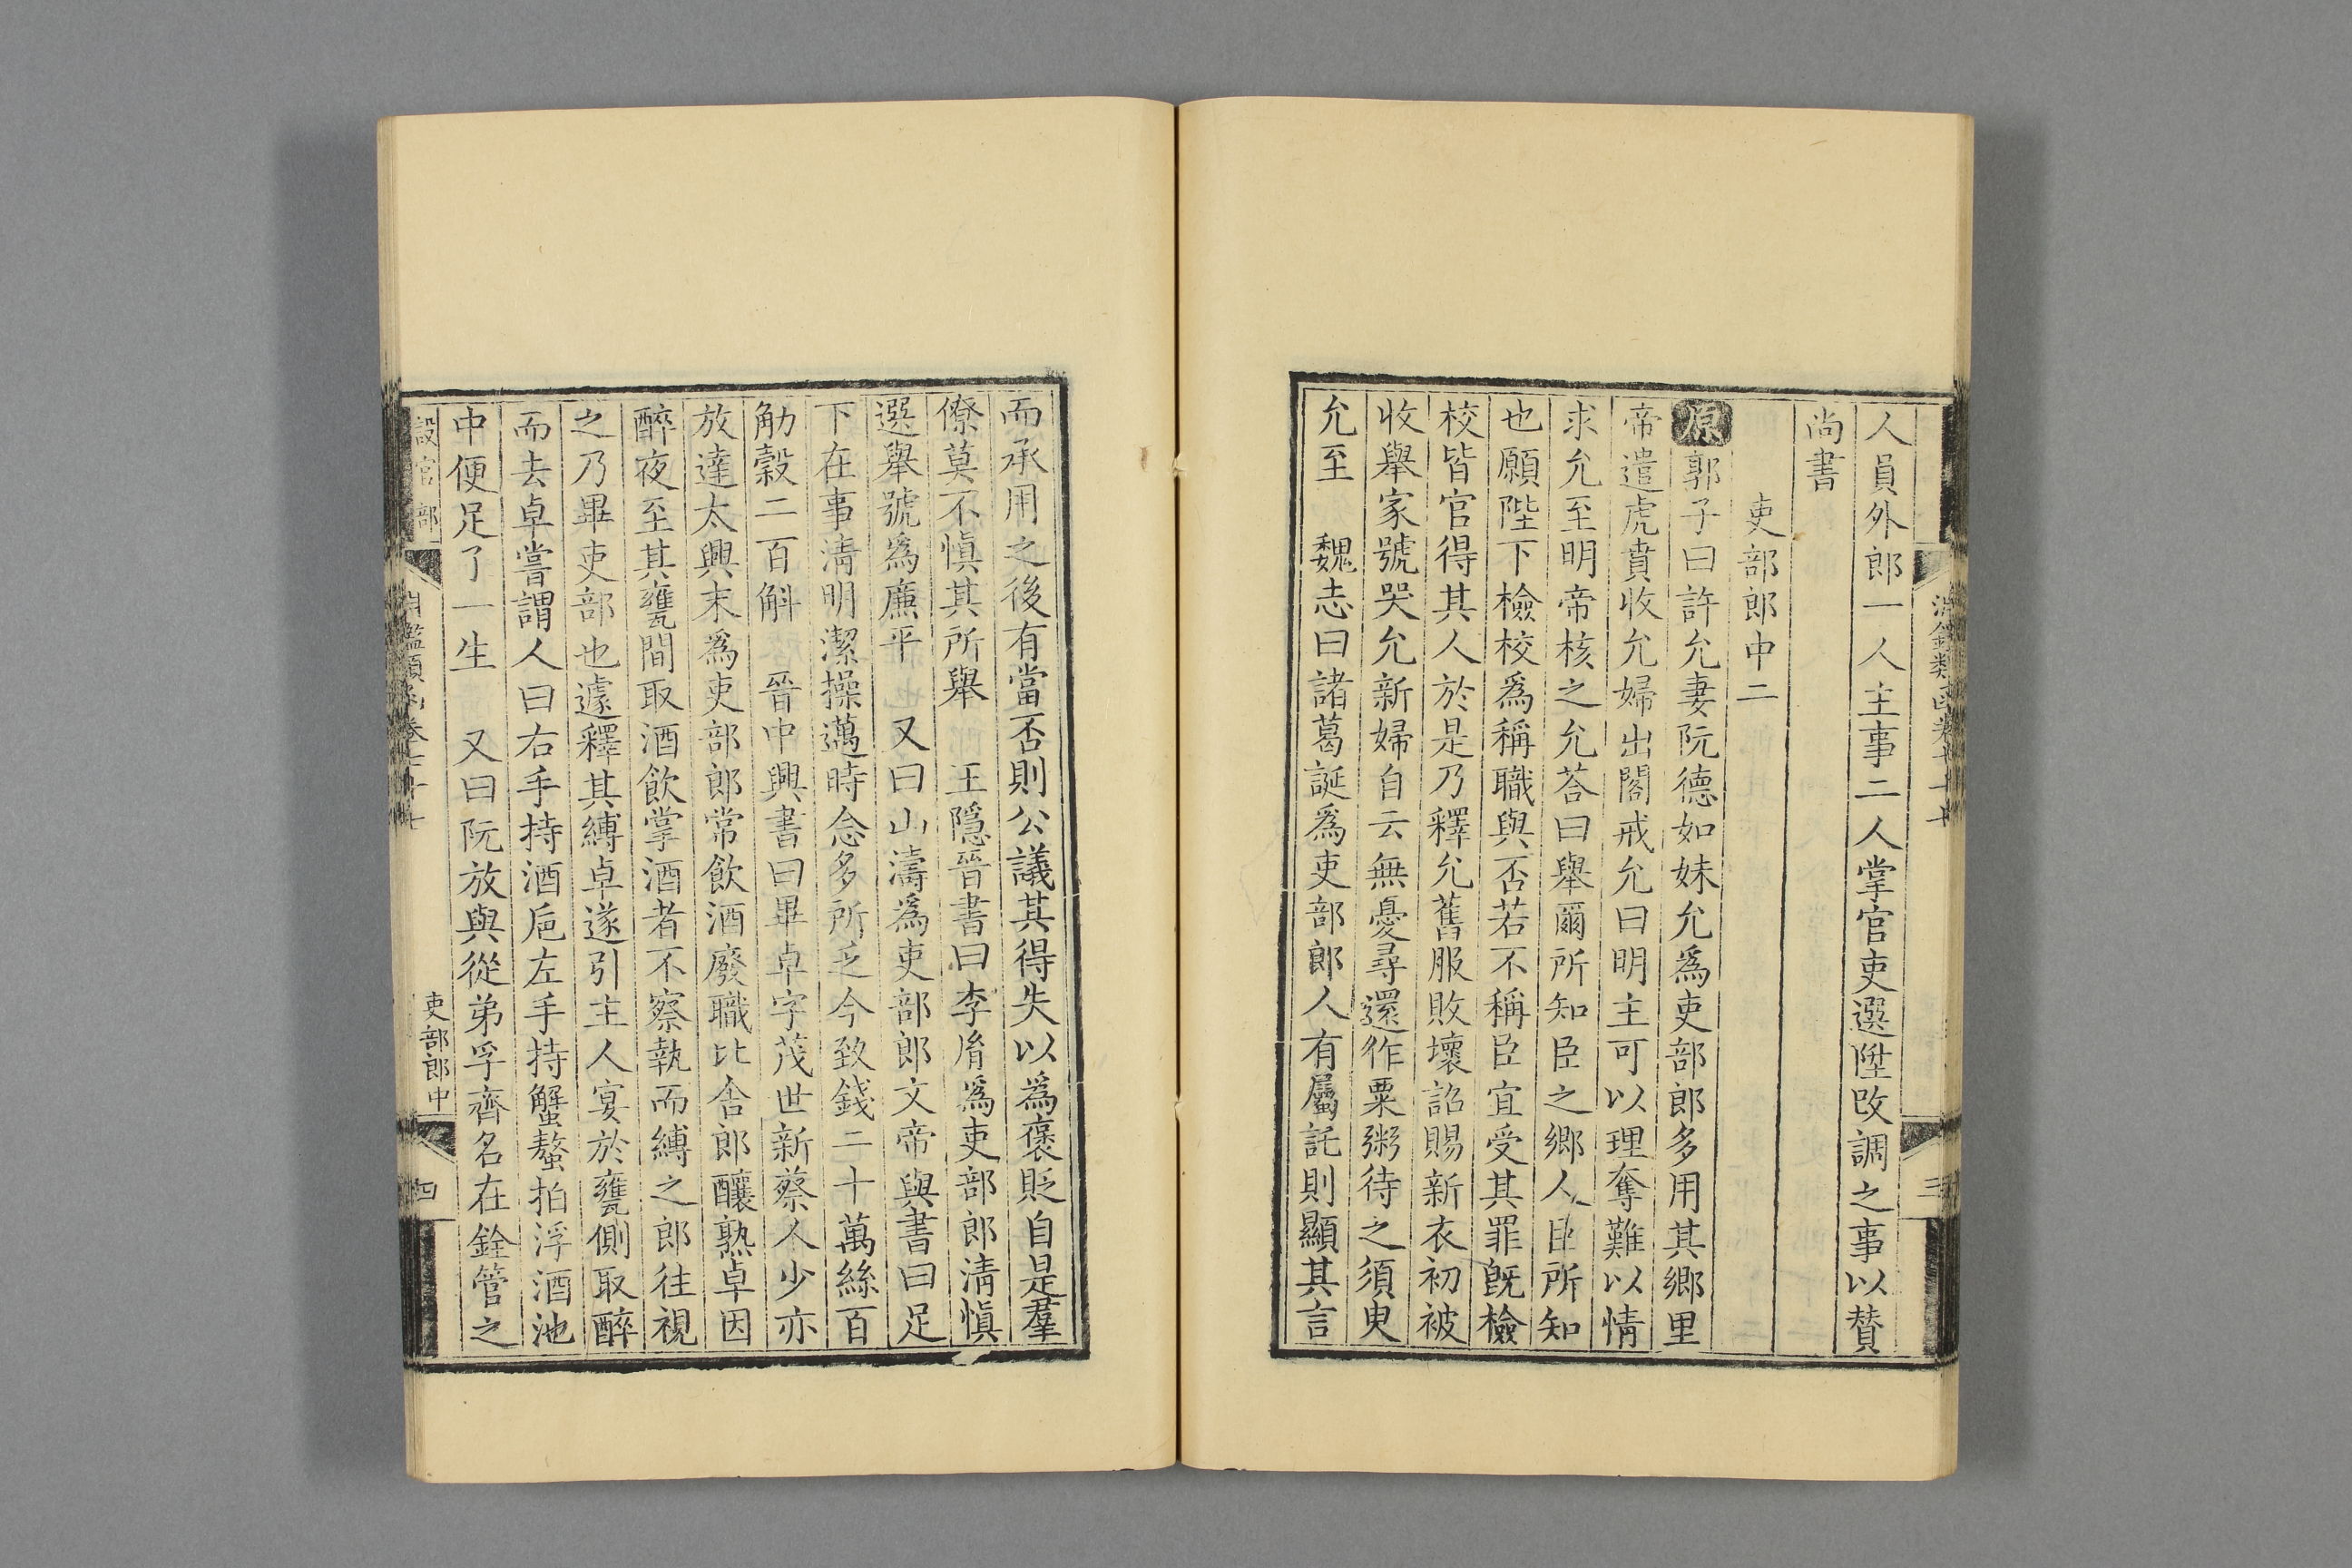 人員外郎一人主事二人掌官吏選陞改調之事以賛
尚書
吏部郎中二
原郭子曰許允妻阮德如妹允爲吏部郎多用其鄉里
帝遣虎賁收允婦出閣戒允曰明主可以理奪難以情
求允至明帝核之允荅曰舉爾所知臣之鄉人臣所知
也願陛下檢校爲稱職與否若不稱臣宜受其罪旣檢
校皆官得其人於是乃釋允舊服敗壞詔賜新衣初被
收舉家號哭允新婦自云無憂尋還作粟粥待之須臾
允至　魏志曰諸葛誕爲吏部郎人有屬託則顯其言
而承用之後有當否則公議其得失以爲褒貶自是羣
僚莫不慎其所舉　王隱晉書曰李胤爲吏部郎清慎
選舉號爲廉平　又曰山濤爲吏部郎文帝與書曰足
下在事清明潔操邁時念多所乏今致錢二十萬絲百
觔穀二百斛　晉中興書曰畢卓字茂世新蔡人少亦
放達太興末爲吏部郎常飲酒廢職比舍郎釀熟卓因
醉夜至其甕間取酒飲掌酒者不察執而縛之郎往視
之乃畢吏部也遽釋其縛卓遂引主人宴於甕側取醉
而去卓嘗謂人曰右手持酒巵左手持蟹螯拍浮酒池
中便足了一生　又曰阮放與從弟孚齊名在銓管之
設官部　淵鑑類函卷七十七　吏部郎中　四